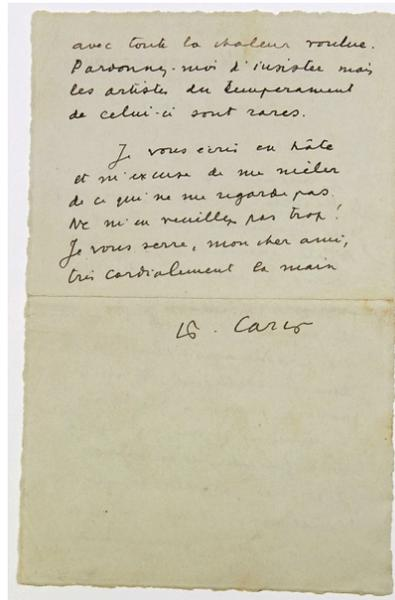 avec toute la chaleur voulue.
Pardonnez-moi d'insister mais
les artistes du tempérament
de celui-ci sont rares.
Je vous écris en hâte
et m'excuse de me mêler
de ce qui ne me regarde pas.
Ne m'en veuillez pas trop !
Je vous serre, mon cher ami,
très cordialement la main